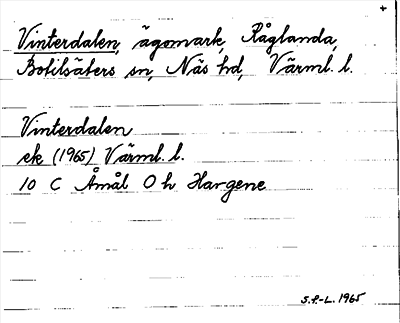 +
Vinterdalen, ägomark, Råglanda,
Botilsäters sn, Näs hd, Värml. l.
Vinterdalen
ek (1965) Värml. l.
10 C Åmål O h Hargene
S.P.-L. 1965